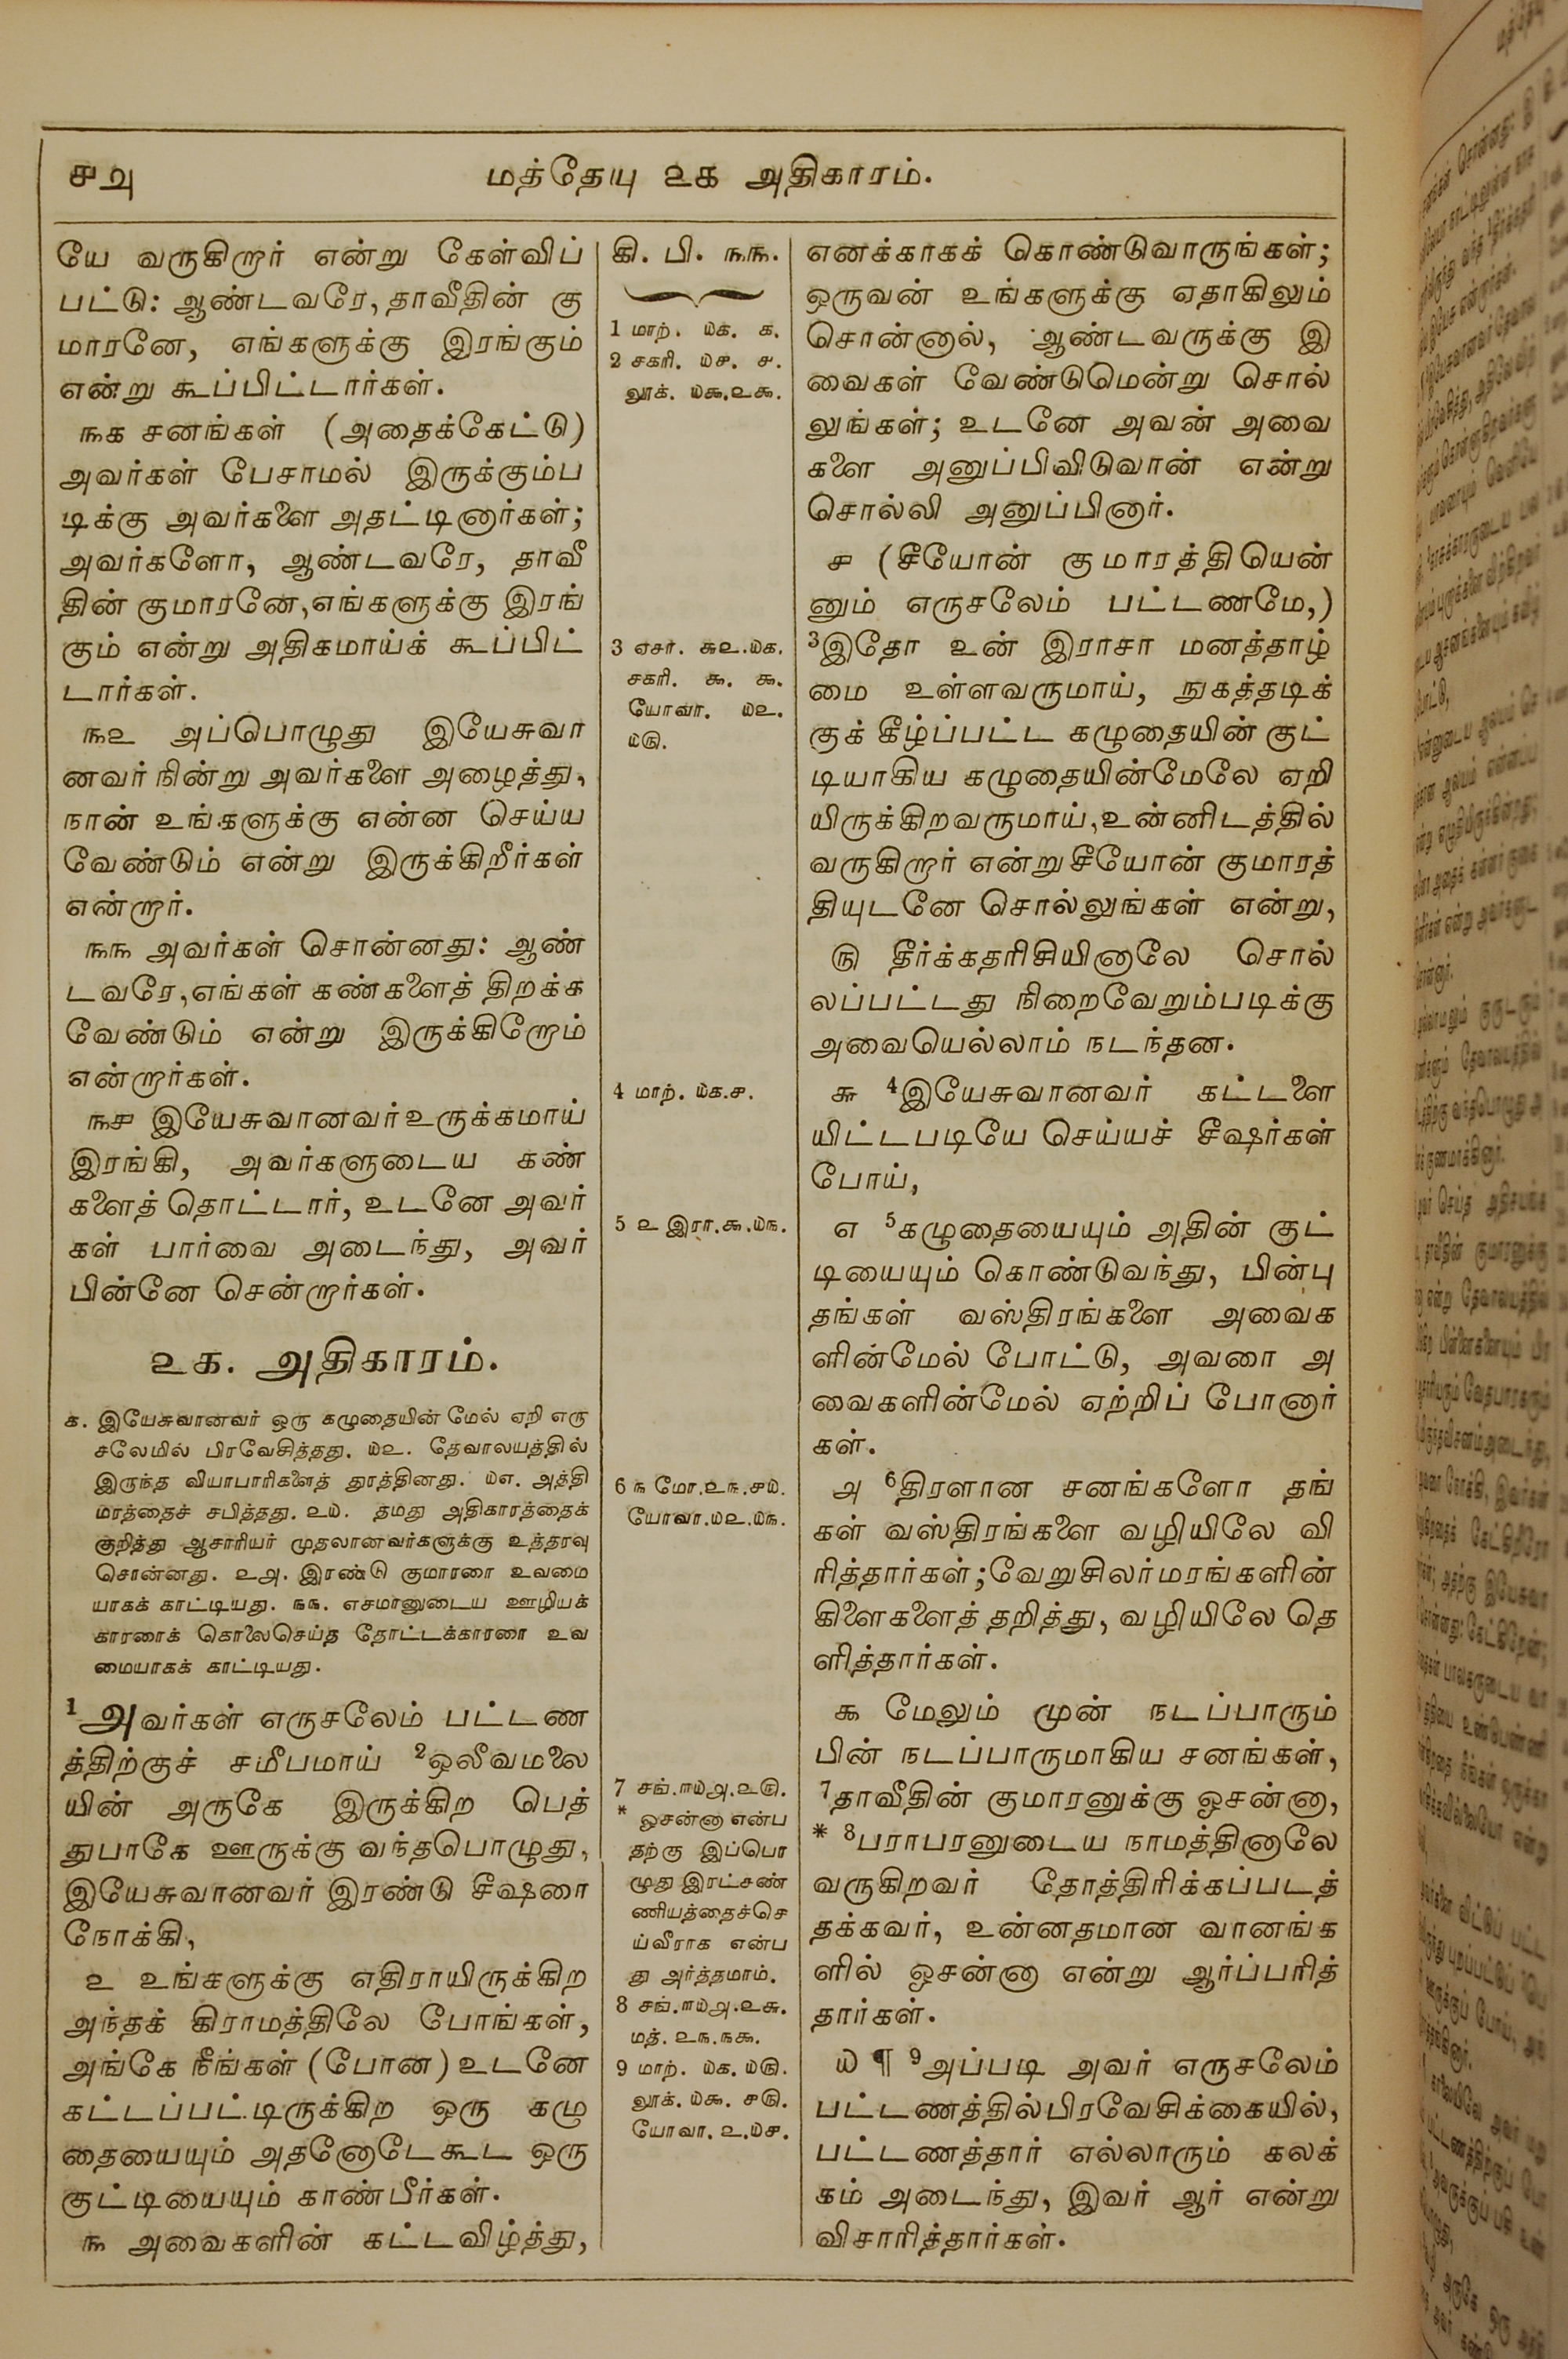 ௪௨ மத்தேயு ௨௧ அதிகாரம்.
யே வருகிறார் என்று கேள்விப்
பட்டு: ஆண்டவரே, தாவீதின் கு
மாரனே, எங்களுக்கு இரங்கும்
என்று கூப்பிட்டார்கள்.
௩௧ சனங்கள் (அதைக்கேட்டு)
அவர்கள் பேசாமல் இருக்கும்ப
டிக்கு அவர்களை அதட்டினார்கள்;
அவர்களோ, ஆண்டவரே, தாவீ
தின் குமாரனே, எங்களுக்கு இரங்
கும் என்று அதிகமாய்க் கூப்பிட்
டார்கள்.
௩௨ அப்பொழுது இயேசுவா
னவர் நின்று அவர்களை அழைத்து,
நான் உங்களுக்கு என்ன செய்ய
வேண்டும் என்று இருக்கிறீர்கள்
என்றார்.
௩௩ அவர்கள் சொன்னது: ஆண்
டவரே, எங்கள் கண்களைத் திறக்க
வேண்டும் என்று இருக்கிறோம்
என்றார்கள்.
௩௪ இயேசுவானவர் உருக்கமாய்
இரங்கி, அவர்களுடைய கண்
களைத் தொட்டார், உடனே அவர்
கள் பார்வை அடைந்து, அவர்
பின்னே சென்றார்கள்.
௨௧. அதிகாரம்.
௧. இயேசுவானவர் ஒரு கழுதையின் மேல் ஏறி எரு
சலேமில் பிரவேசித்தது. ௰௨. தேவாலயத்தில்
இருந்த வியாபாரிகளைத் துரத்தினது. ௰௭. அத்தி
மரத்தைச் சபித்தது. ௨௰. தமது அதிகாரத்தைக்
குறித்து ஆசாரியர் முதலானவர்களுக்கு உத்தரவு
சொன்னது. ௨௮. இரண்டு குமாரரை உவமை
யாகக் காட்டியது. ௩௩. எசமானுடைய ஊழியக்
காரரைக் கொலைசெய்த தோட்டக்காரரை உவ
மையாகக் காட்டியது.
1 அவர்கள் எருசலேம் பட்டண
த்திற்குச் சமீபமாய் 2ஒலீவமலை
யின் அருகே இருக்கிற பெத்
துபாகே ஊருக்கு வந்தபொழுது,
இயேசுவானவர் இரண்டு சீஷரை
நோக்கி,
௨ உங்களுக்கு எதிராயிருக்கிற
அந்தக் கிராமத்திலே போங்கள்,
அங்கே நீங்கள் (போன) உடனே
கட்டப்பட்டிருக்கிற ஒரு கழு
தையையும் அதனோடேகூட ஒரு
குட்டியையும் காண்பீர்கள்.
௩ அவைகளின் கட்டவிழ்த்து,
கி. பி. ௩௩.
1 மாற். ௰௧. ௧.
2 சகரி. ௰௪. ௪.
லூக். ௰௯.௨௯.
3 ஏசா. ௬௨.௰௧.
சகரி. ௯. ௯.
யோவா. ௰௨.
௰௫.
4 மாற். ௰௧.௪.
5 ௨ இரா.௯.௰௩.
6 ௩ மோ.௨௩.௪௰.
யோவா.௰௨.௰௩.
7 சங்.௱௰௮.௨௫.
* ஓசன்னா என்ப
தற்கு இப்பொ
ழுது இரட்சண்
ணியத்தைச்செ
ய்வீராக என்ப
து அர்த்தமாம்.
8 சங்.௱௰௮.௨௬.
மத். ௨௩.௩௯.
9 மாற். ௰௧. ௰௫.
லூக். ௰௯. ௪௫.
யோவா. ௨.௰௪.
எனக்காகக் கொண்டுவாருங்கள்;
ஒருவன் உங்களுக்கு ஏதாகிலும்
சொன்னால், ஆண்டவருக்கு இ
வைகள் வேண்டுமென்று சொல்
லுங்கள்; உடனே அவன் அவை
களை அனுப்பிவிடுவான் என்று
சொல்லி அனுப்பினார்.
௪ (சீயோன் குமாரத்தியென்
னும் எருசலேம் பட்டணமே,)
3இதோ உன் இராசா மனத்தாழ்
மை உள்ளவருமாய், நுகத்தடிக்
குக் கீழ்ப்பட்ட கழுதையின் குட்
டியாகிய கழுதையின்மேலே ஏறி
யிருக்கிறவருமாய், உன்னிடத்தில்
வருகிறார் என்று சீயோன் குமாரத்
தியுடனே சொல்லுங்கள் என்று,
௫ தீர்க்கதரிசியினாலே சொல்
லப்பட்டது நிறைவேறும்படிக்கு
அவையெல்லாம் நடந்தன.
௬ 4இயேசுவானவர் கட்டளை
யிட்டபடியே செய்யச் சீஷர்கள்
போய்,
௭ 5கழுதையையும் அதின் குட்
டியையும் கொண்டுவந்து, பின்பு
தங்கள் வஸ்திரங்களை அவைக
ளின்மேல் போட்டு, அவரை அ
வைகளின்மேல் ஏற்றிப் போனார்
கள்.
௮ 6திரளான சனங்களோ தங்
கள் வஸ்திரங்களை வழியிலே வி
ரித்தார்கள்; வேறுசிலர் மரங்களின்
கிளைகளைத் தறித்து, வழியிலே தெ
ளித்தார்கள்.
௯ மேலும் முன் நடப்பாரும்
பின் நடப்பாருமாகிய சனங்கள்,
7தாவீதின் குமாரனுக்கு ஓசன்னா,
* 8பராபரனுடைய நாமத்தினாலே
வருகிறவர் தோத்திரிக்கப்படத்
தக்கவர், உன்னதமான வானங்க
ளில் ஓசன்னா என்று ஆர்ப்பரித்
தார்கள்.
௰ ¶ 9அப்படி அவர் எருசலேம்
பட்டணத்தில் பிரவேசிக்கையில்,
பட்டணத்தார் எல்லாரும் கலக்
கம் அடைந்து, இவர் ஆர் என்று
விசாரித்தார்கள்.